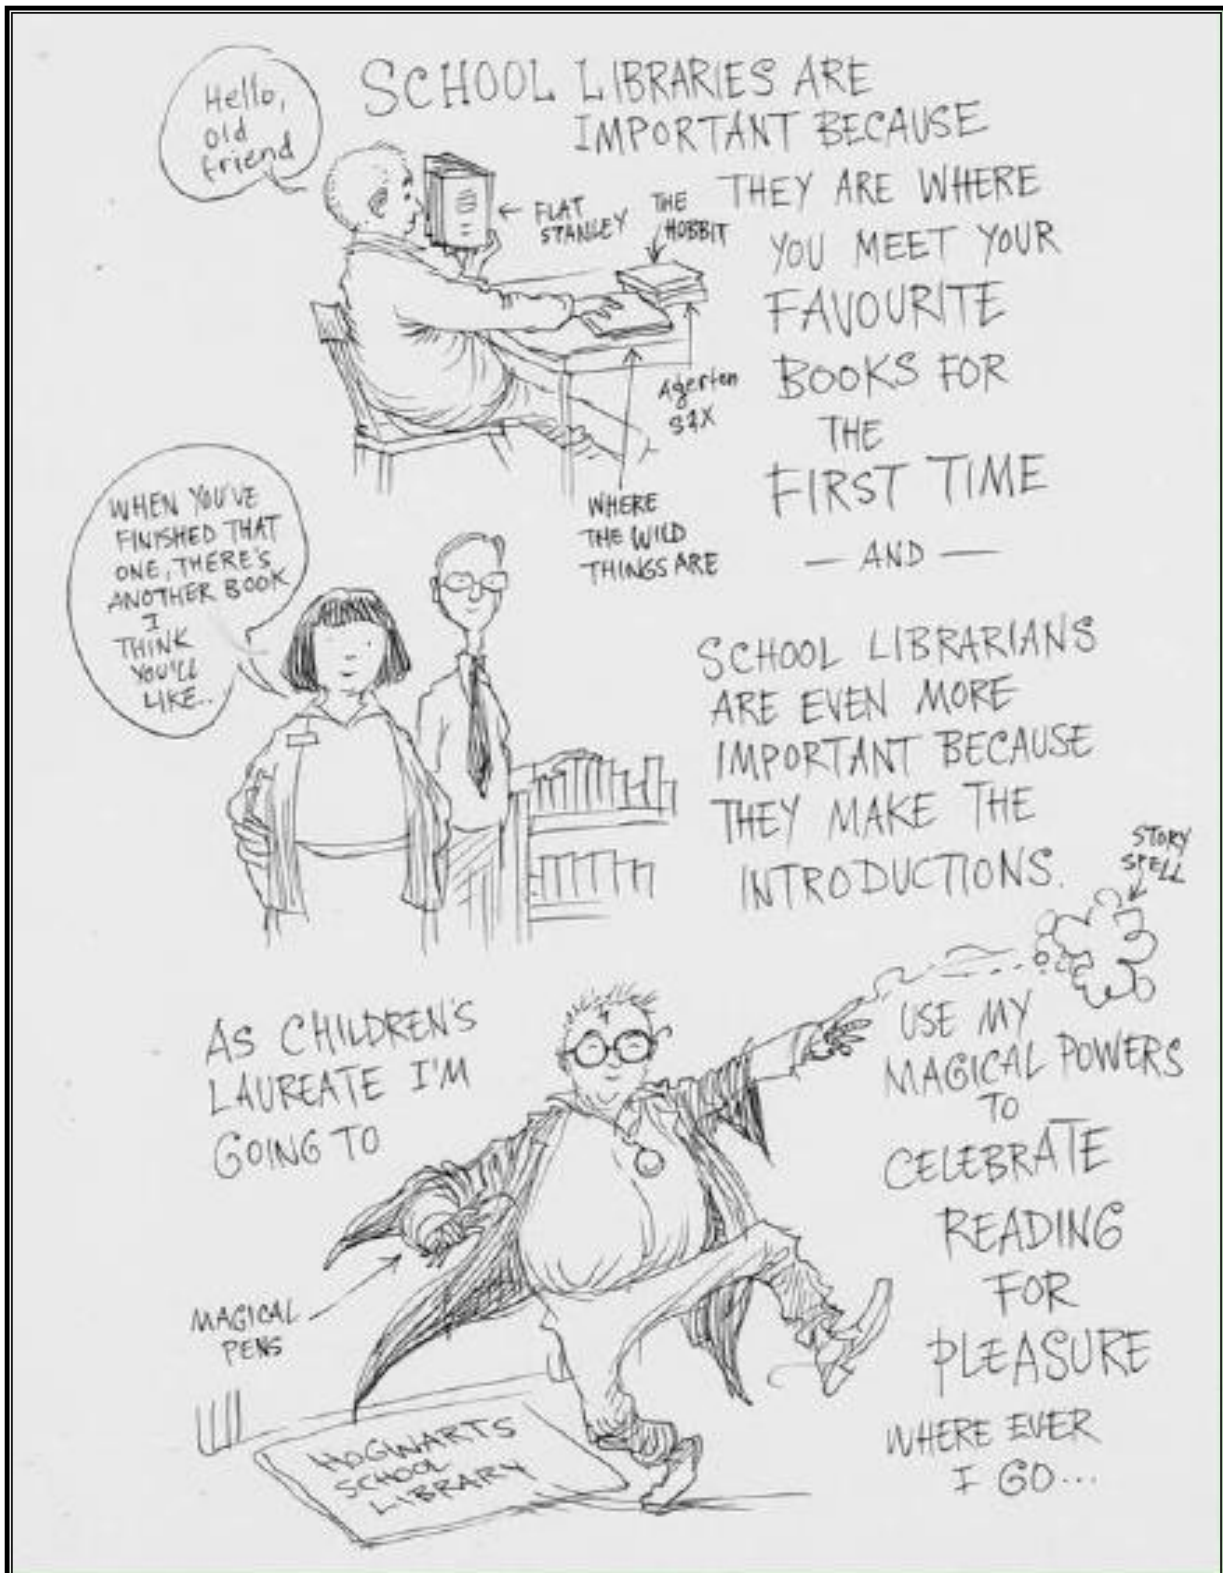 Hello,
old
friend
SCHOOL LIBRARIES ARE
IMPORTANT BECAUSE
THEY ARE WHERE
YOU MEET YOUR
FAVOURITE
BOOKS FOR
THE
FIRST TIME
— AND —
FLAT
STANLEY
THE
HOBBIT
Agerton
SAX
WHERE
THE WILD
THINGS ARE
WHEN YOU'VE
FINISHED THAT
ONE, THERE'S
ANOTHER BOOK
I
THINK
YOU'LL
LIKE..
SCHOOL LIBRARIANS
ARE EVEN MORE
IMPORTANT BECAUSE
THEY MAKE THE
INTRODUCTIONS.
STORY
SPELL
AS CHILDREN'S
LAUREATE I'M
GOING TO
USE MY
MAGICAL POWERS
TO
CELEBRATE
READING
FOR
PLEASURE
WHERE EVER
I GO...
MAGICAL
PENS
HOGWARTS
SCHOOL
LIBRARY